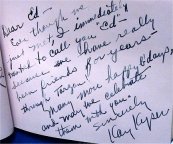 Dear Ed —
Even though we
just met, I immediately
wanted to call you "Ed" —
because we have really
been friends for years —
through Tarzan!
Many more happy b'days,
and may we celebrate
them with you!
Sincerely
Kay Kyser